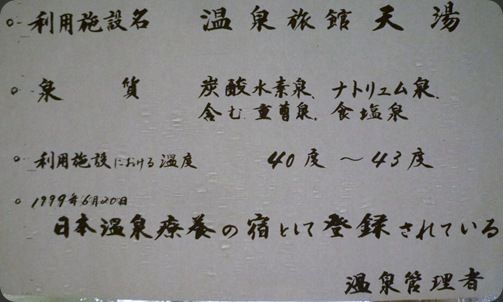 ○ 利用施設名　温泉旅館 天湯
○ 泉　質　炭酸水素泉、ナトリュム泉、
含む重曹泉、食塩泉
○ 利用施設における温度　40度～43度
○ 1999年6月20日
日本温泉療養の宿として登録されている
温泉管理者